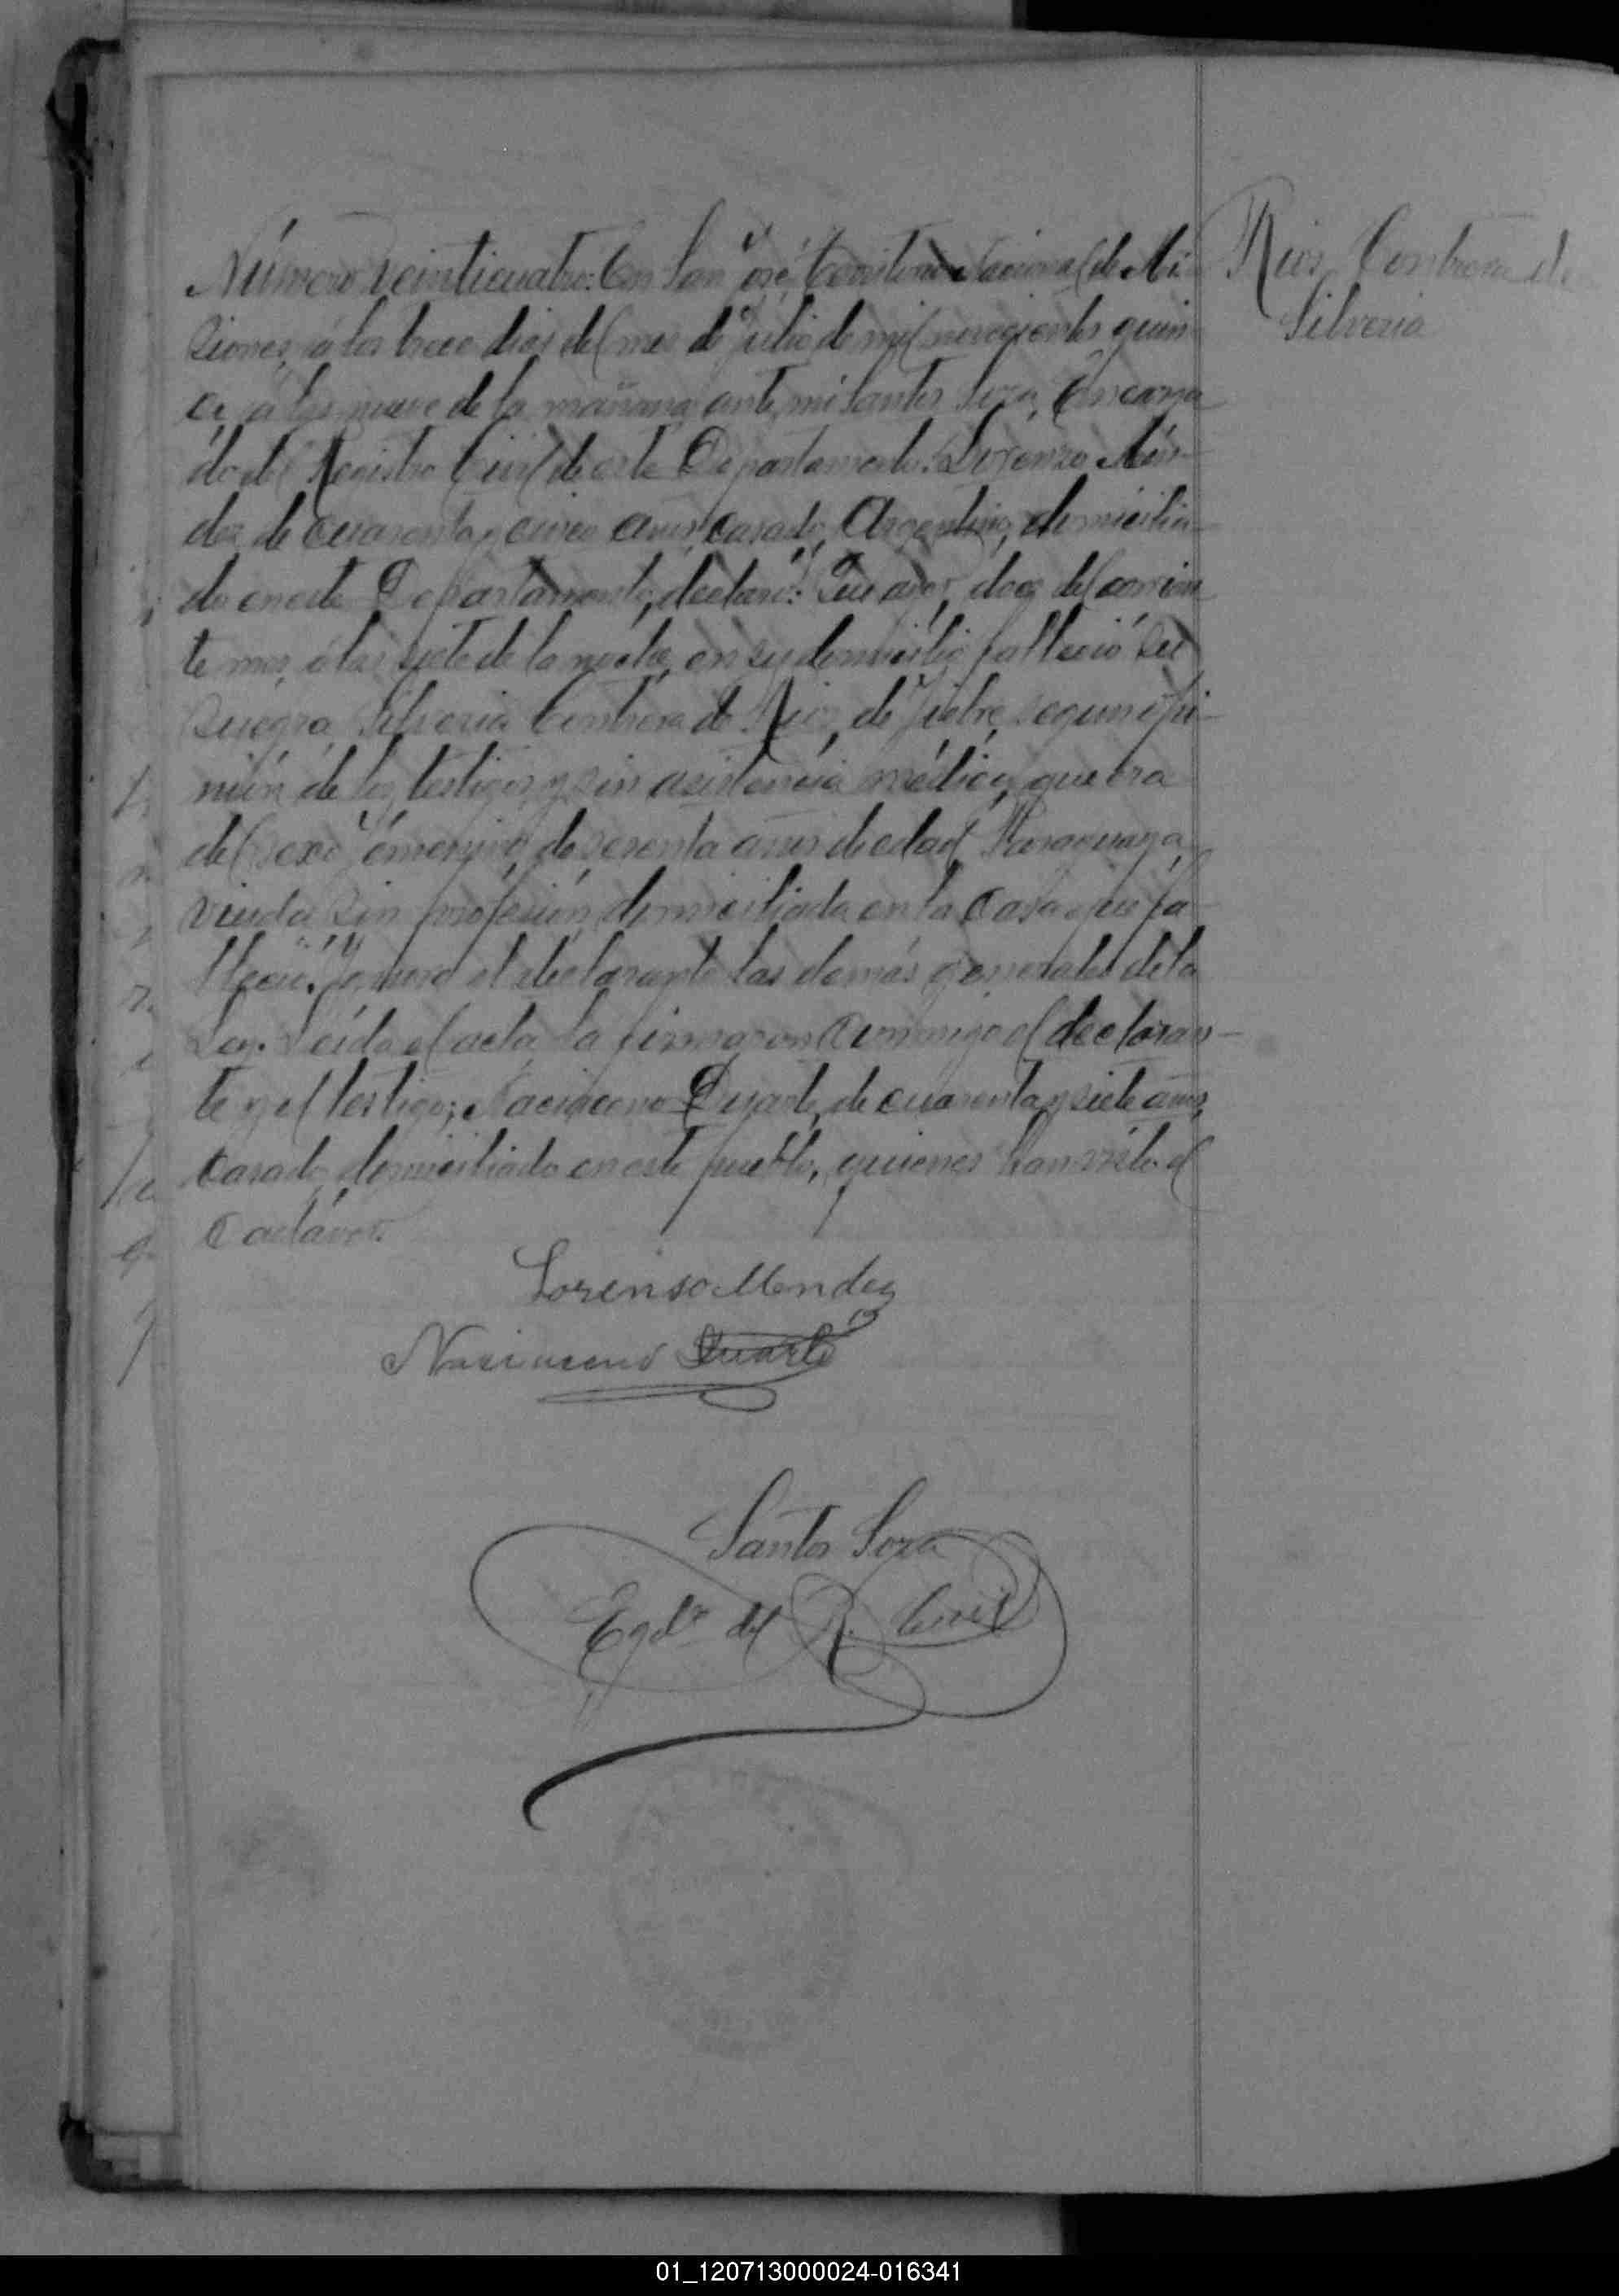 Número veinticuatro: En San José, Territorio Nacional de Mi-
siones, á los trece dias del mes de Julio de mil novecientos quin-
ce, á las nueve de la mañana, ante mi Santos Soza, Encarga-
do del Registro Civil de este Departamento: Lorenzo Mén-
dez, de cuarenta y cinco años, casado, Argentino, domicilia-
do en este Departamento, declaró: Que ayer, doce del corrien-
te mes, á las siete de la noche, en su domicilio falleció su
suegra, Silveria Contrera de Rios, de fiebre, segun opi-
nión de los testigos, y sin asistencia médica, que era
del sexo femenino, de sesenta años de edad, Paraguaya,
viuda, sin profesión, domiciliada en la casa que fa-
lleció. Ignora el declarante las demás generales de la
Ley. Leída el acta, la firmaron conmigo el declaran-
te y el testigo; Nacianceno Duarte, de cuarenta y siete años,
casado, domiciliado en este pueblo, quienes han visto el
cadáver.
Lorenso Mendez
Duarte
Santos Soza
Egdo. del R. Civil
Rios, Contrera de
Silveria
01_120713000024-016341